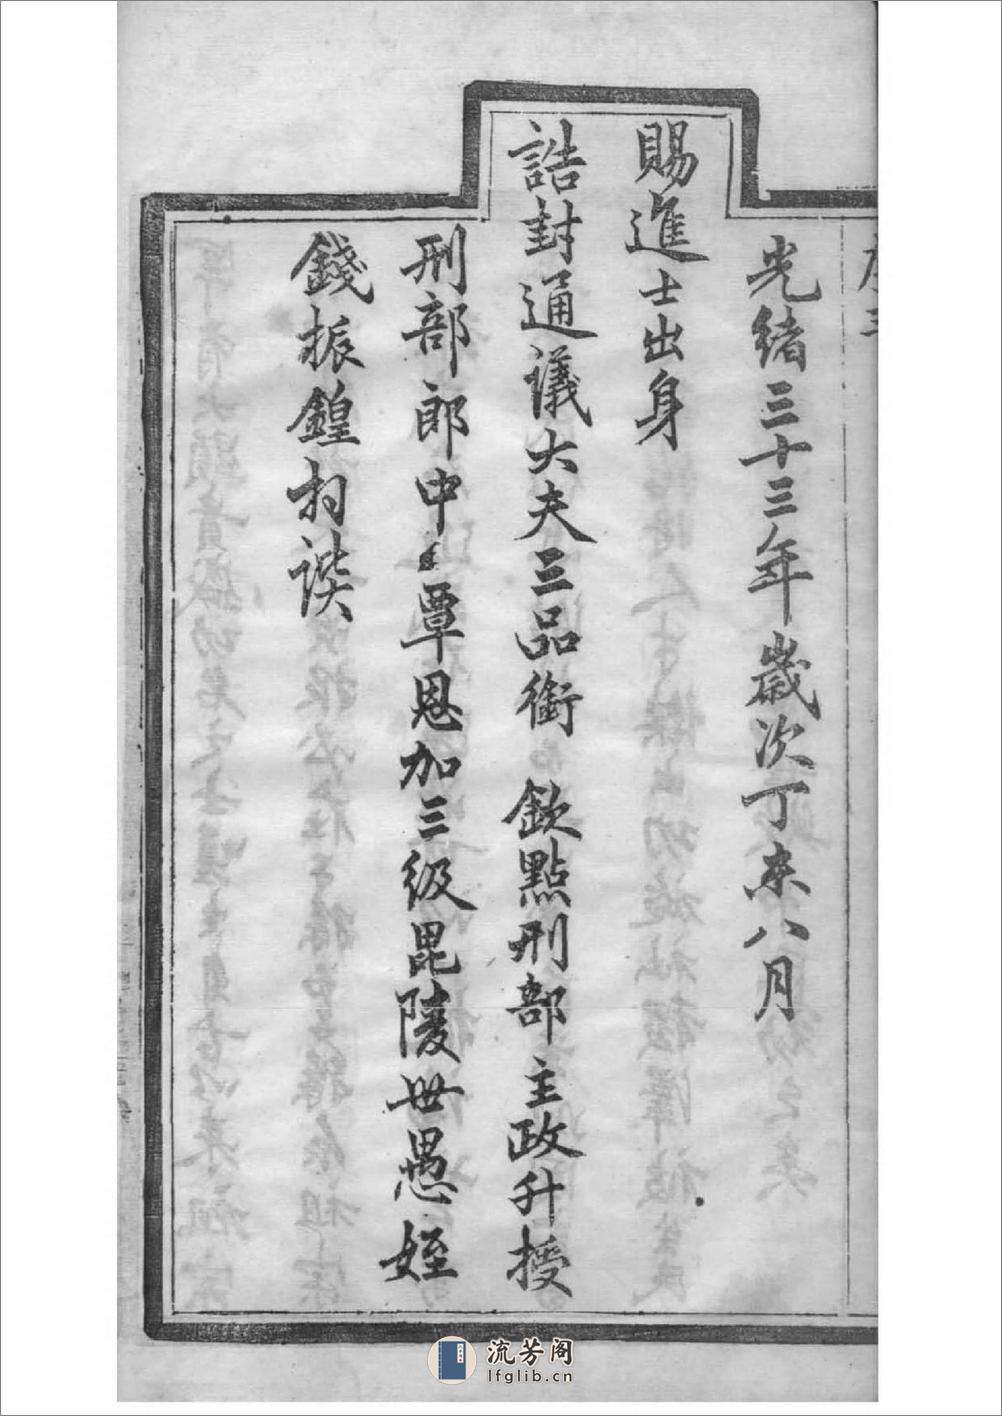 序三
光緒三十三年歲次丁未八月
賜進士出身
誥封通議大夫三品銜 欽點刑部主政升授
刑部郎中〻覃恩加三級毘陵世愚姪
錢振鍠拜譔
流芳阁
lfglib.cn